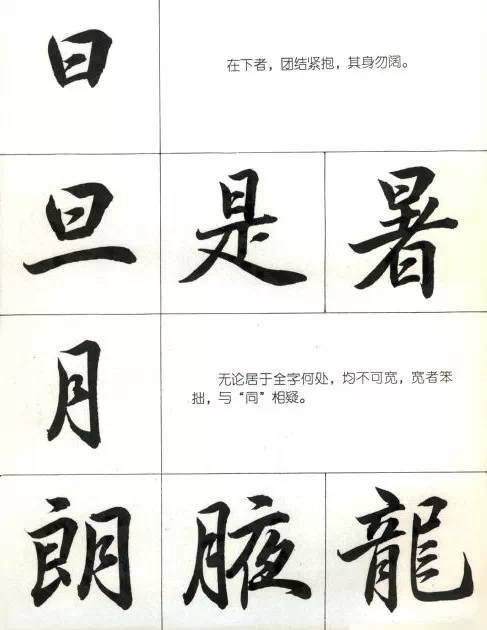 日
在下者，团结紧抱，其身勿阔。
旦 是 暑
月
无论居于全字何处，均不可宽，宽者笨
拙，与“同”相疑。
朗 腋 龍